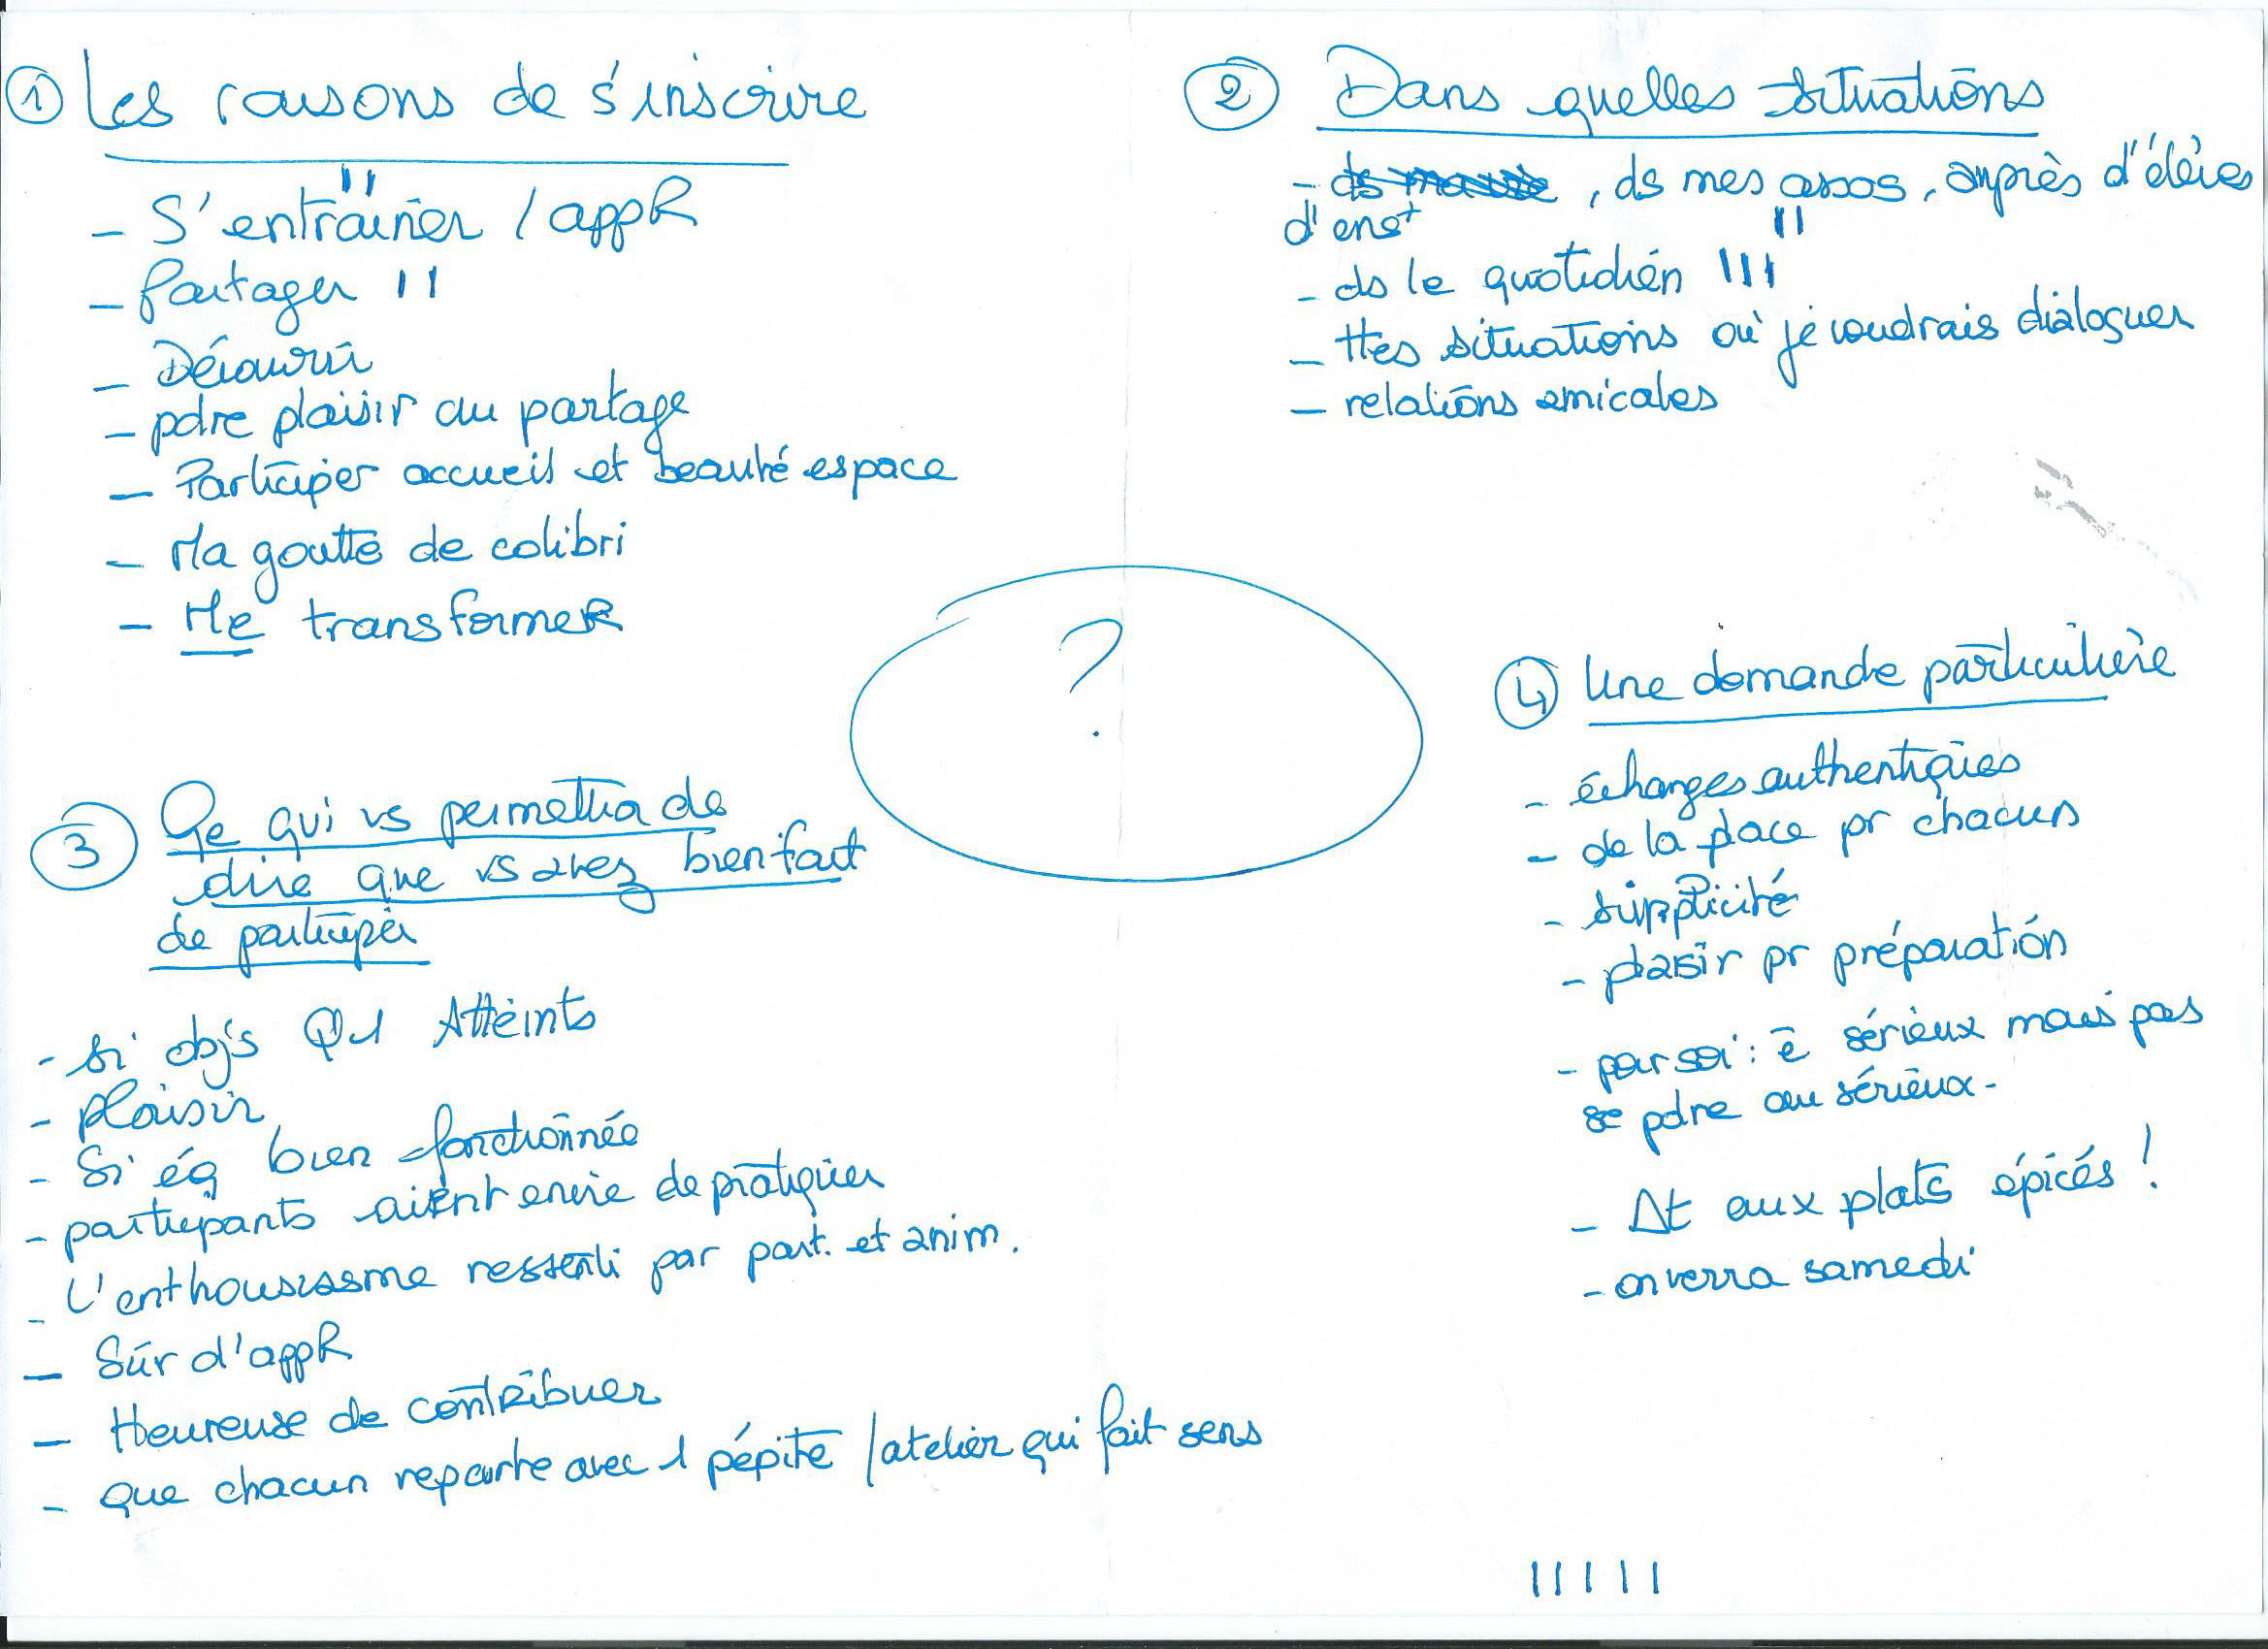 ① Les raisons de s'inscrire
- S'entraîner / appR II
- Partager II
- Découvrir
- pdre plaisir au partage
- Participer accueil et beauté espace
- Ma goutte de colibri
- Me transformer
② Dans quelles situations
- , ds mes assos, auprès d'élèves
d'enst II
- ds le quotidien III
- ttes situations où je voudrais dialoguer
- relations amicales
?
③ Ce qui vs permettra de
dire que vs avez bien fait
de participer
- si objs Q1 Atteints
- Plaisir
- Si éq bien fonctionnée
- participants aient envie de pratiquer
- L'enthousiasme ressenti par part. et anim.
- Sûr d'appR
- Heureuse de contribuer
- que chacun reparte avec 1 pépite / atelier qui fait sens
④ Une demande particulière
- échanges authentiques
- de la place pr chacun
- simplicité
- plaisir pr préparation
- par soi : ê sérieux mais pas
se pdre au sérieux -
- At aux plats épicés !
- on verra samedi
IIIII